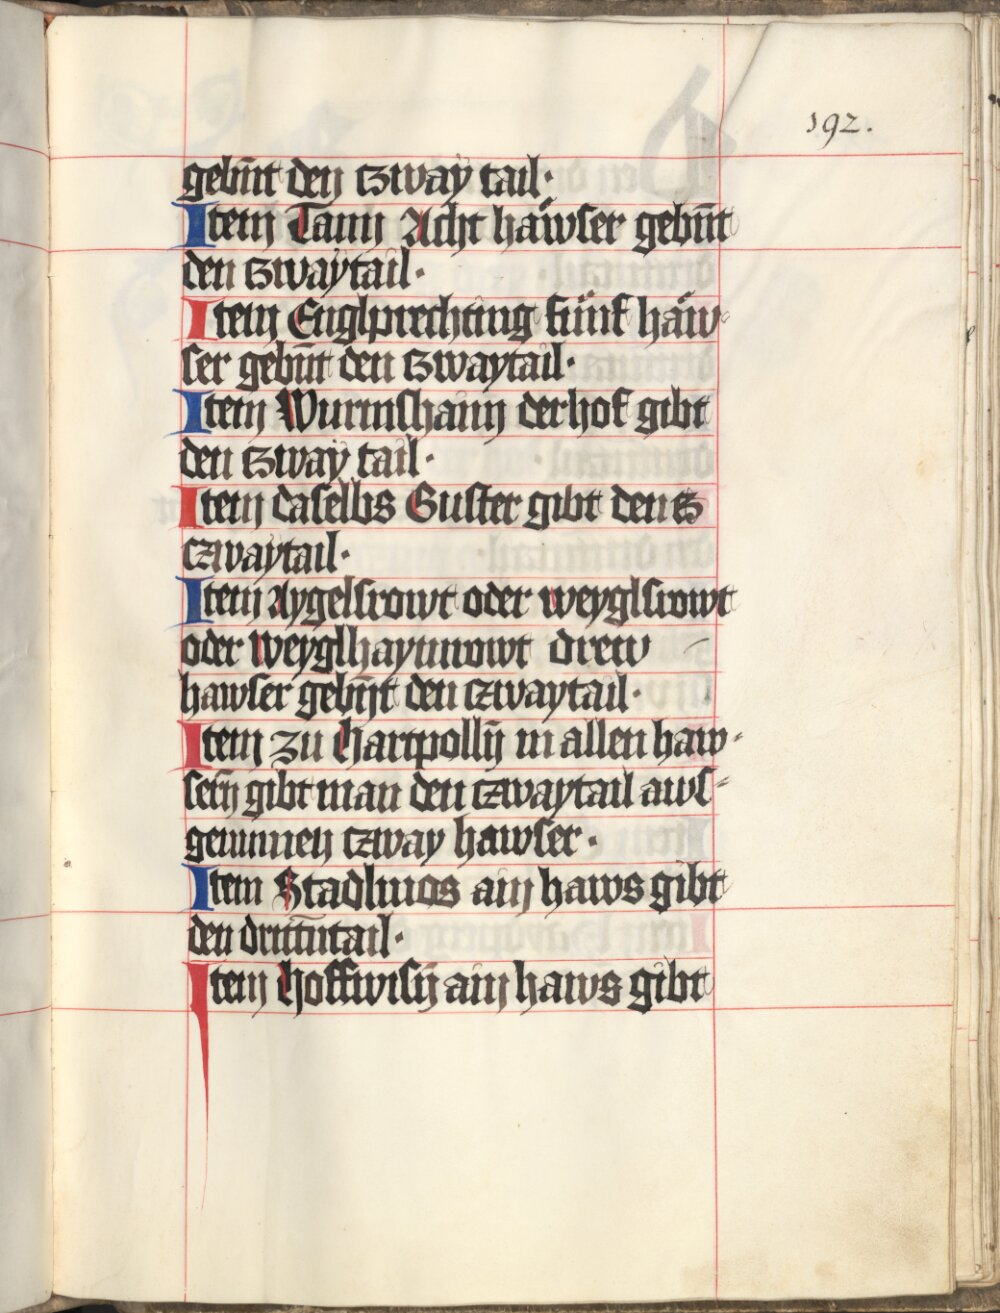 192.
gebnt den czway tail·
Item Tann Acht häwser gebnt
den czwaytail·
Item Englprechting fünf häw
ser gebnt den czwaytail·
Item Wurmshaim der hof gibt
den czway tail·
Item daselbs Guster gibt den cz
czwaytail·
Item Aygelsrowt oder weyglsrowt
oder weyglhaymrowt drew
hawser gebnt den czwaytail·
Item zu hartpolln in allen haw-
sern gibt man den czwaytail aws-
genumen czway hawser·
Item Stadlmos ain haws gibt
den drittntail·
Item hoffwisn ain haws gibt